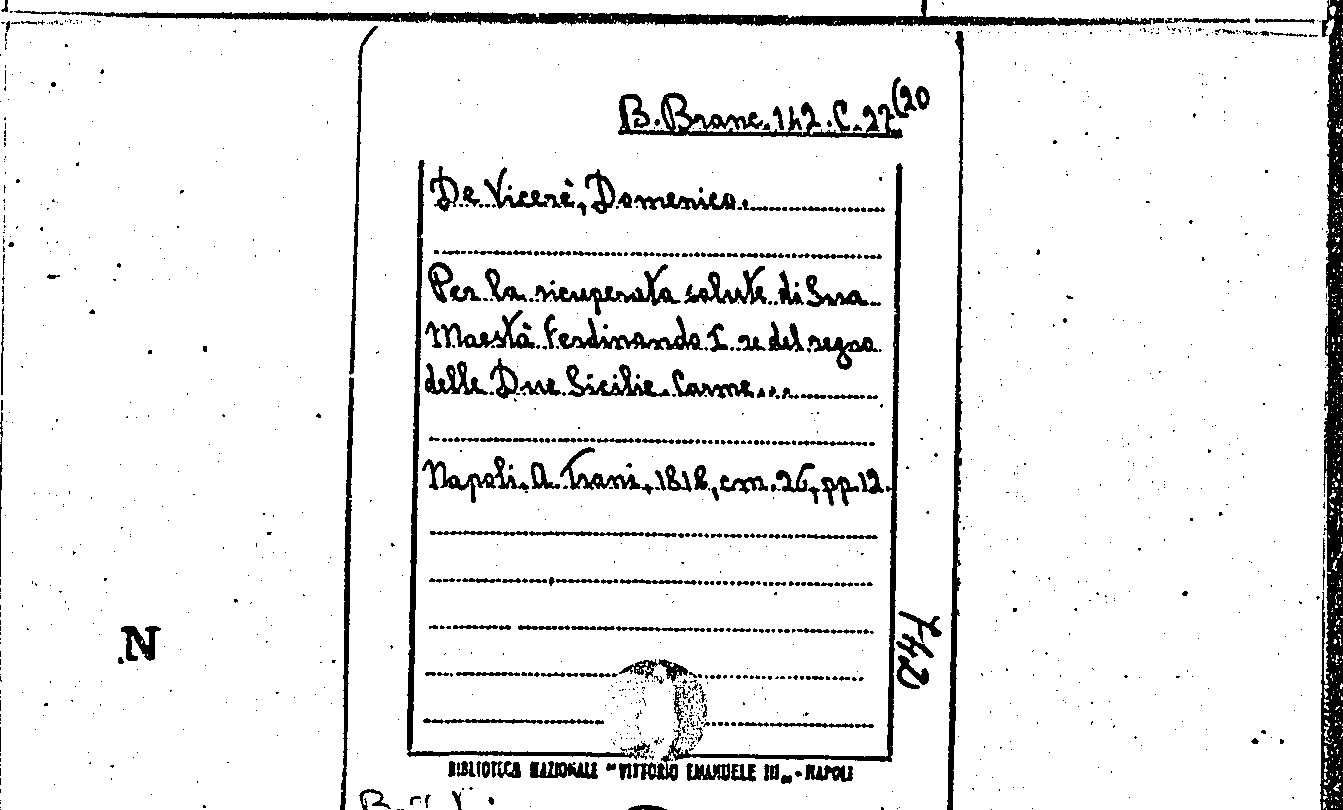 B. Branc. 142. C. 27(20
De Vicerè, Domenico.
Per la ricuperata salute di Sua
Maestà Ferdinando I re del regno
delle Due Sicilie. Carme...
Napoli. A. Trani, 1818, cm. 26, pp 12.
N
BIBLIOTECA NAZIONALE "VITTORIO EMANUELE III" - NAPOLI